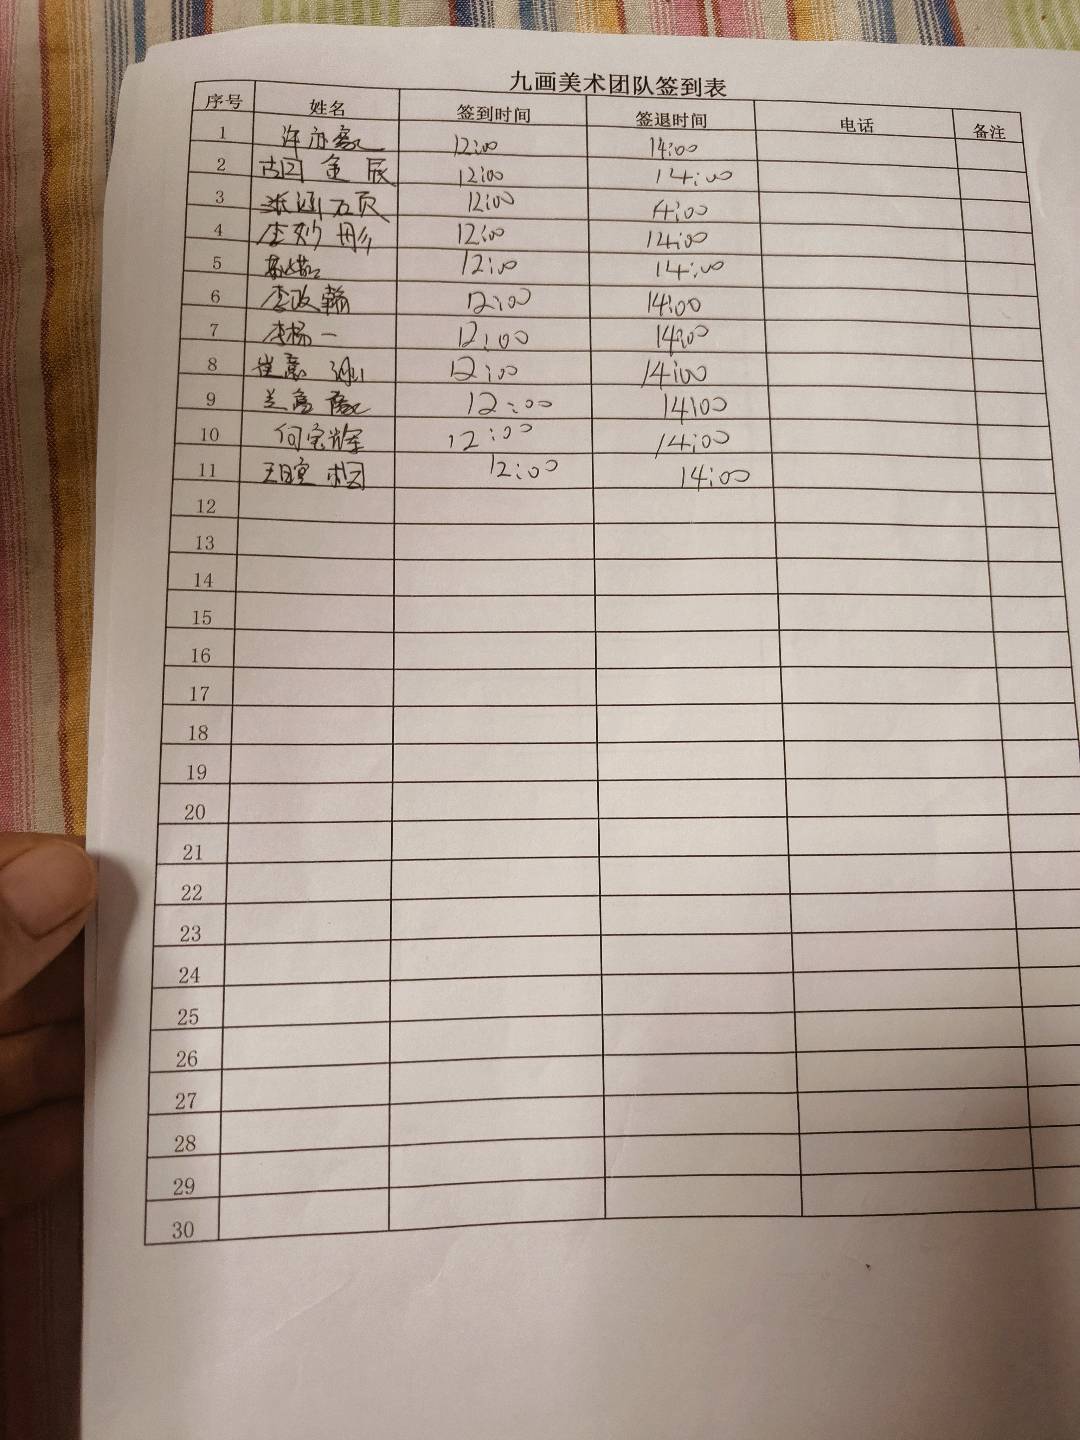 九画美术团队签到表
序号 姓名 签到时间 签退时间 电话 备注
1 许亦 12:00 14:00
2 胡金辰 12:00 14:00
3 张涵 12:00 4:00
4 李妙彤 12:00 14:00
5 12:00 14:00
6 李政翰 12:00 14:00
7 李杨一 12:00 14:00
8 崔意 12:00 14:00
9 兰富 12:00 14:00
10 何宝辉 12:00 14:00
11 王 12:00 14:00
12
13
14
15
16
17
18
19
20
21
22
23
24
25
26
27
28
29
30